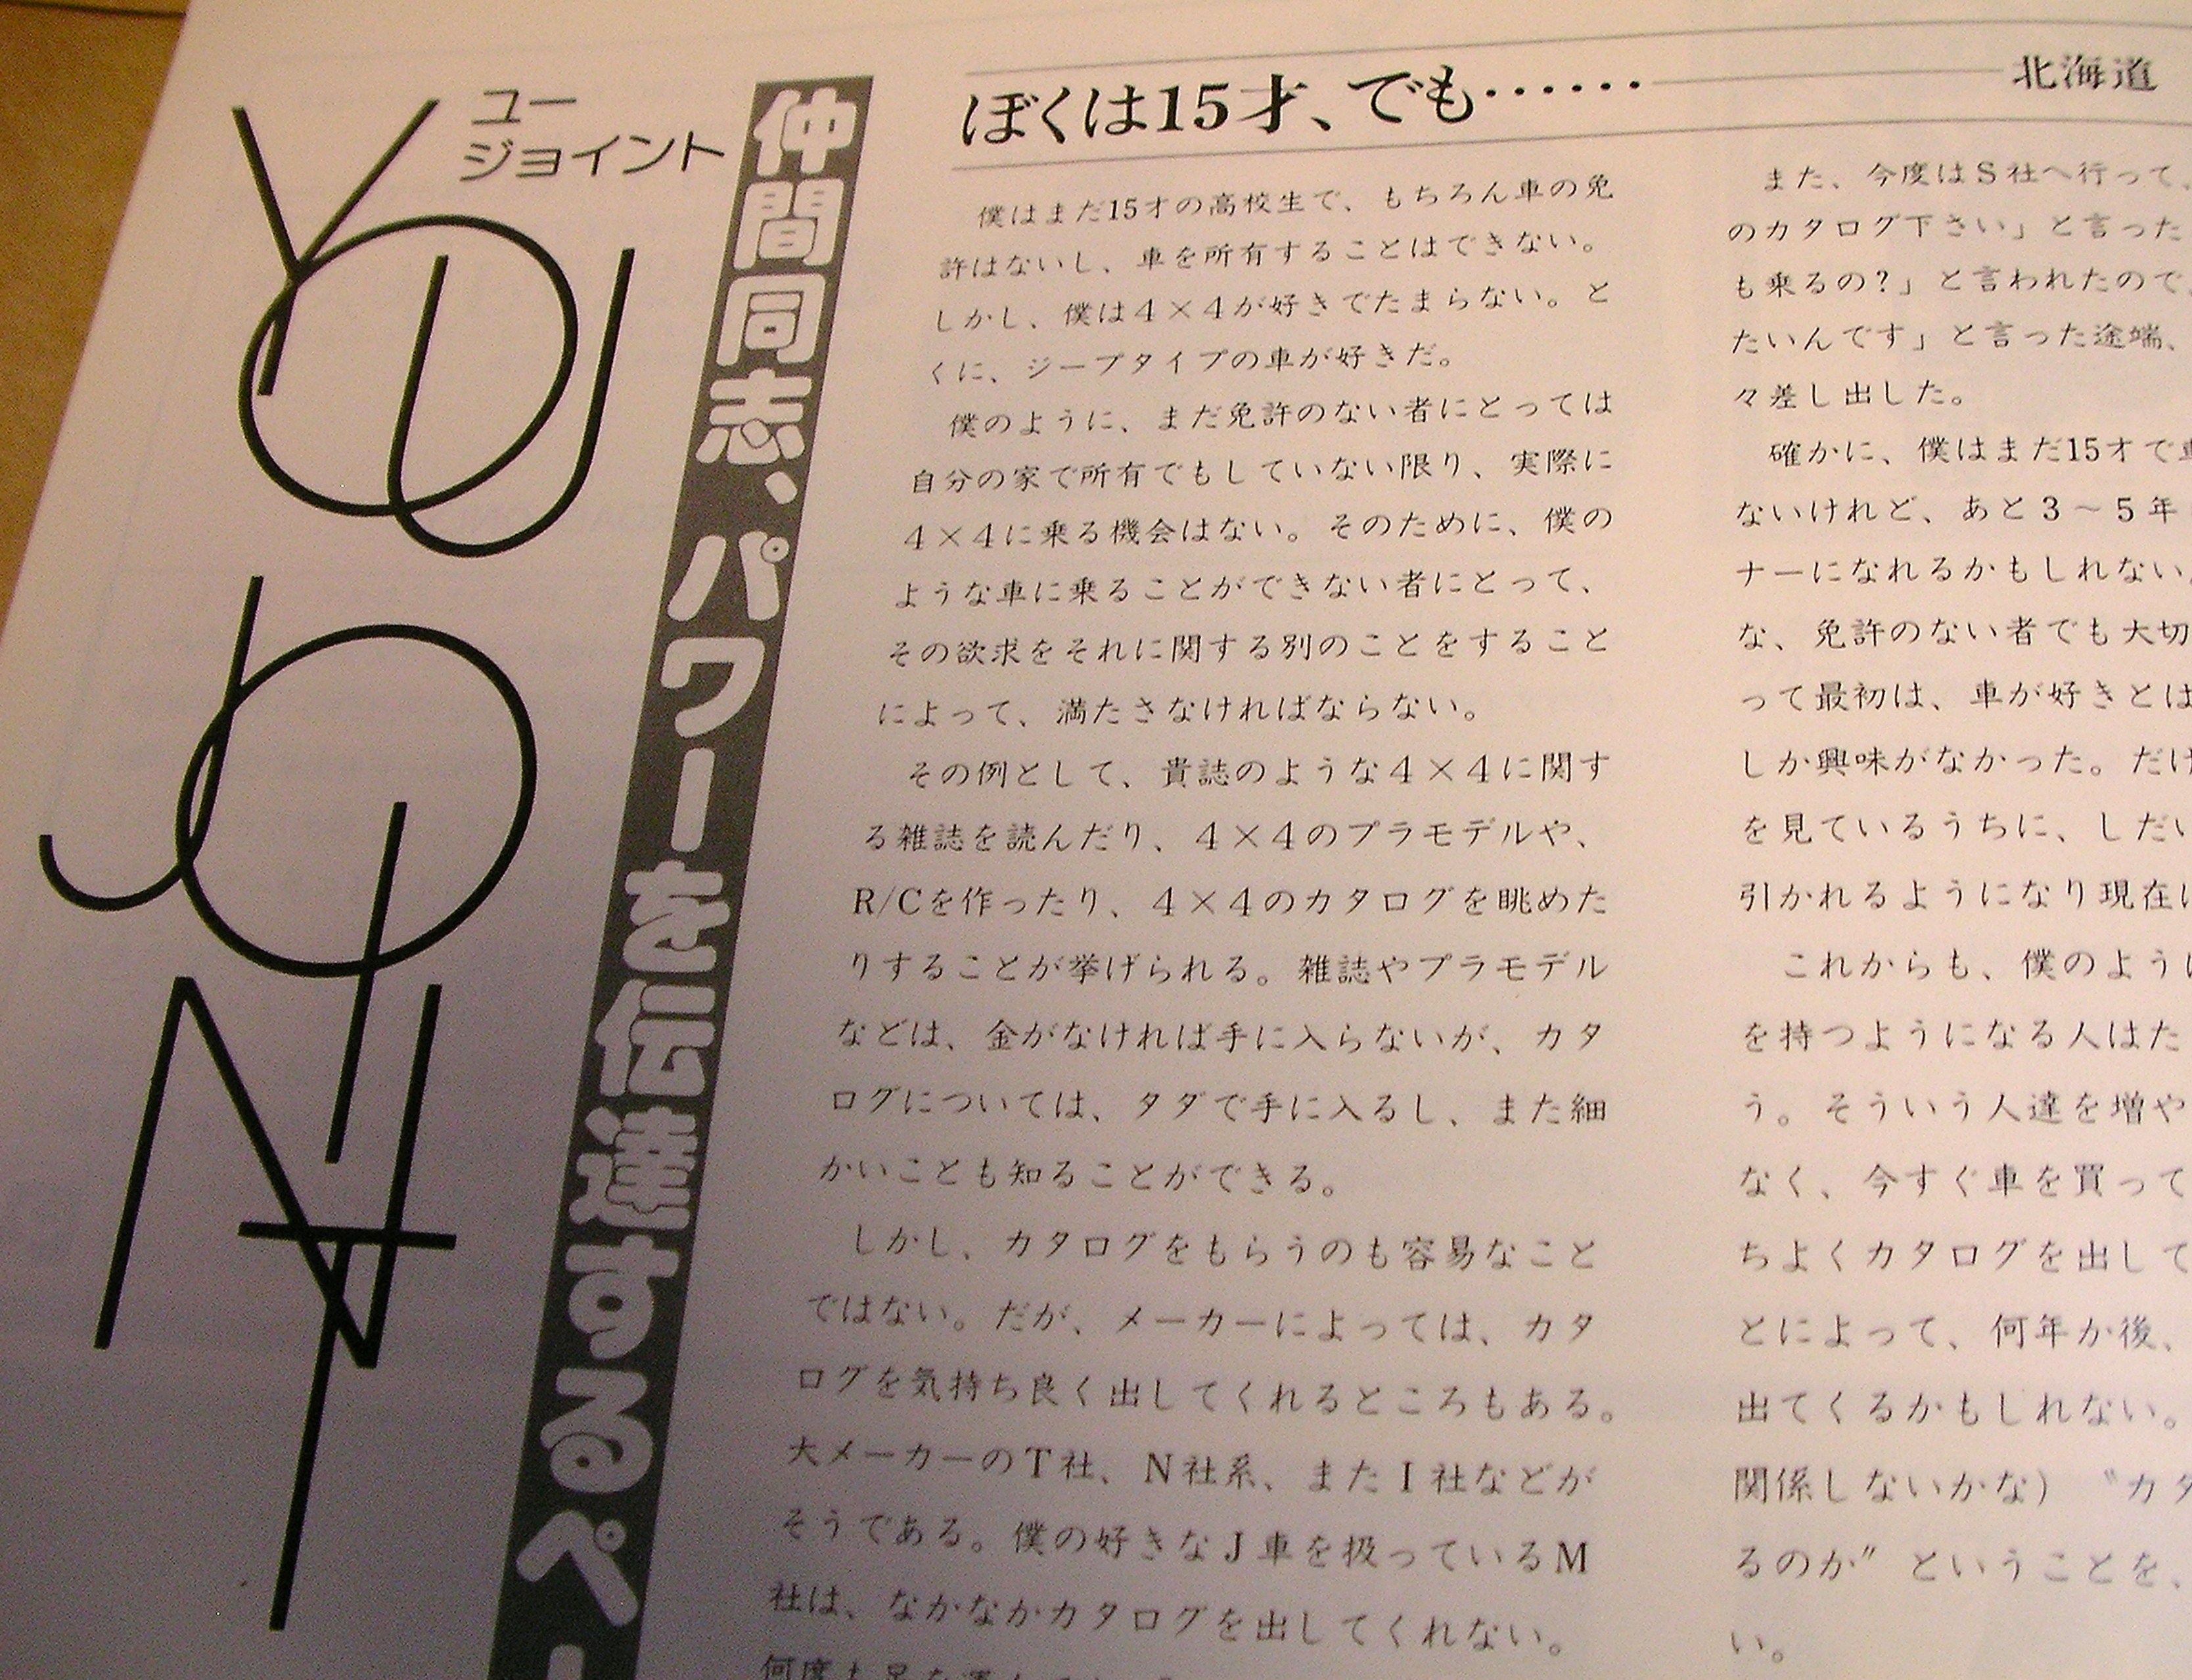 YOU
JOINT
ユー
ジョイント
仲間同志、パワーを伝達するペー
ぼくは15才、でも……
北海道
僕はまだ15才の高校生で、もちろん車の免
許はないし、車を所有することはできない。
しかし、僕は4×4が好きでたまらない。と
くに、ジープタイプの車が好きだ。
僕のように、まだ免許のない者にとっては
自分の家で所有でもしていない限り、実際に
4×4に乗る機会はない。そのために、僕の
ような車に乗ることができない者にとって、
その欲求をそれに関する別のことをすること
によって、満たさなければならない。
その例として、貴誌のような4×4に関す
る雑誌を読んだり、4×4のプラモデルや、
R/Cを作ったり、4×4のカタログを眺めた
りすることが挙げられる。雑誌やプラモデル
などは、金がなければ手に入らないが、カタ
ログについては、タダで手に入るし、また細
かいことも知ることができる。
しかし、カタログをもらうのも容易なこと
ではない。だが、メーカーによっては、カタ
ログを気持ち良く出してくれるところもある。
大メーカーのT社、N社系、またI社などが
そうである。僕の好きなJ車を扱っているM
社は、なかなかカタログを出してくれない。
また、今度はS社へ行って、
のカタログ下さい」と言った
も乗るの?」と言われたので、
たいんです」と言った途端、
々差し出した。
確かに、僕はまだ15才で車
ないけれど、あと3〜5年
ナーになれるかもしれない。
な、免許のない者でも大切
って最初は、車が好きとは
しか興味がなかった。だけ
を見ているうちに、しだい
引かれるようになり現在に
これからも、僕のように
を持つようになる人はた
う。そういう人達を増や
なく、今すぐ車を買って
ちよくカタログを出して
とによって、何年か後、
出てくるかもしれない。
関係しないかな)〝カタ
るのか〞ということを、
い。